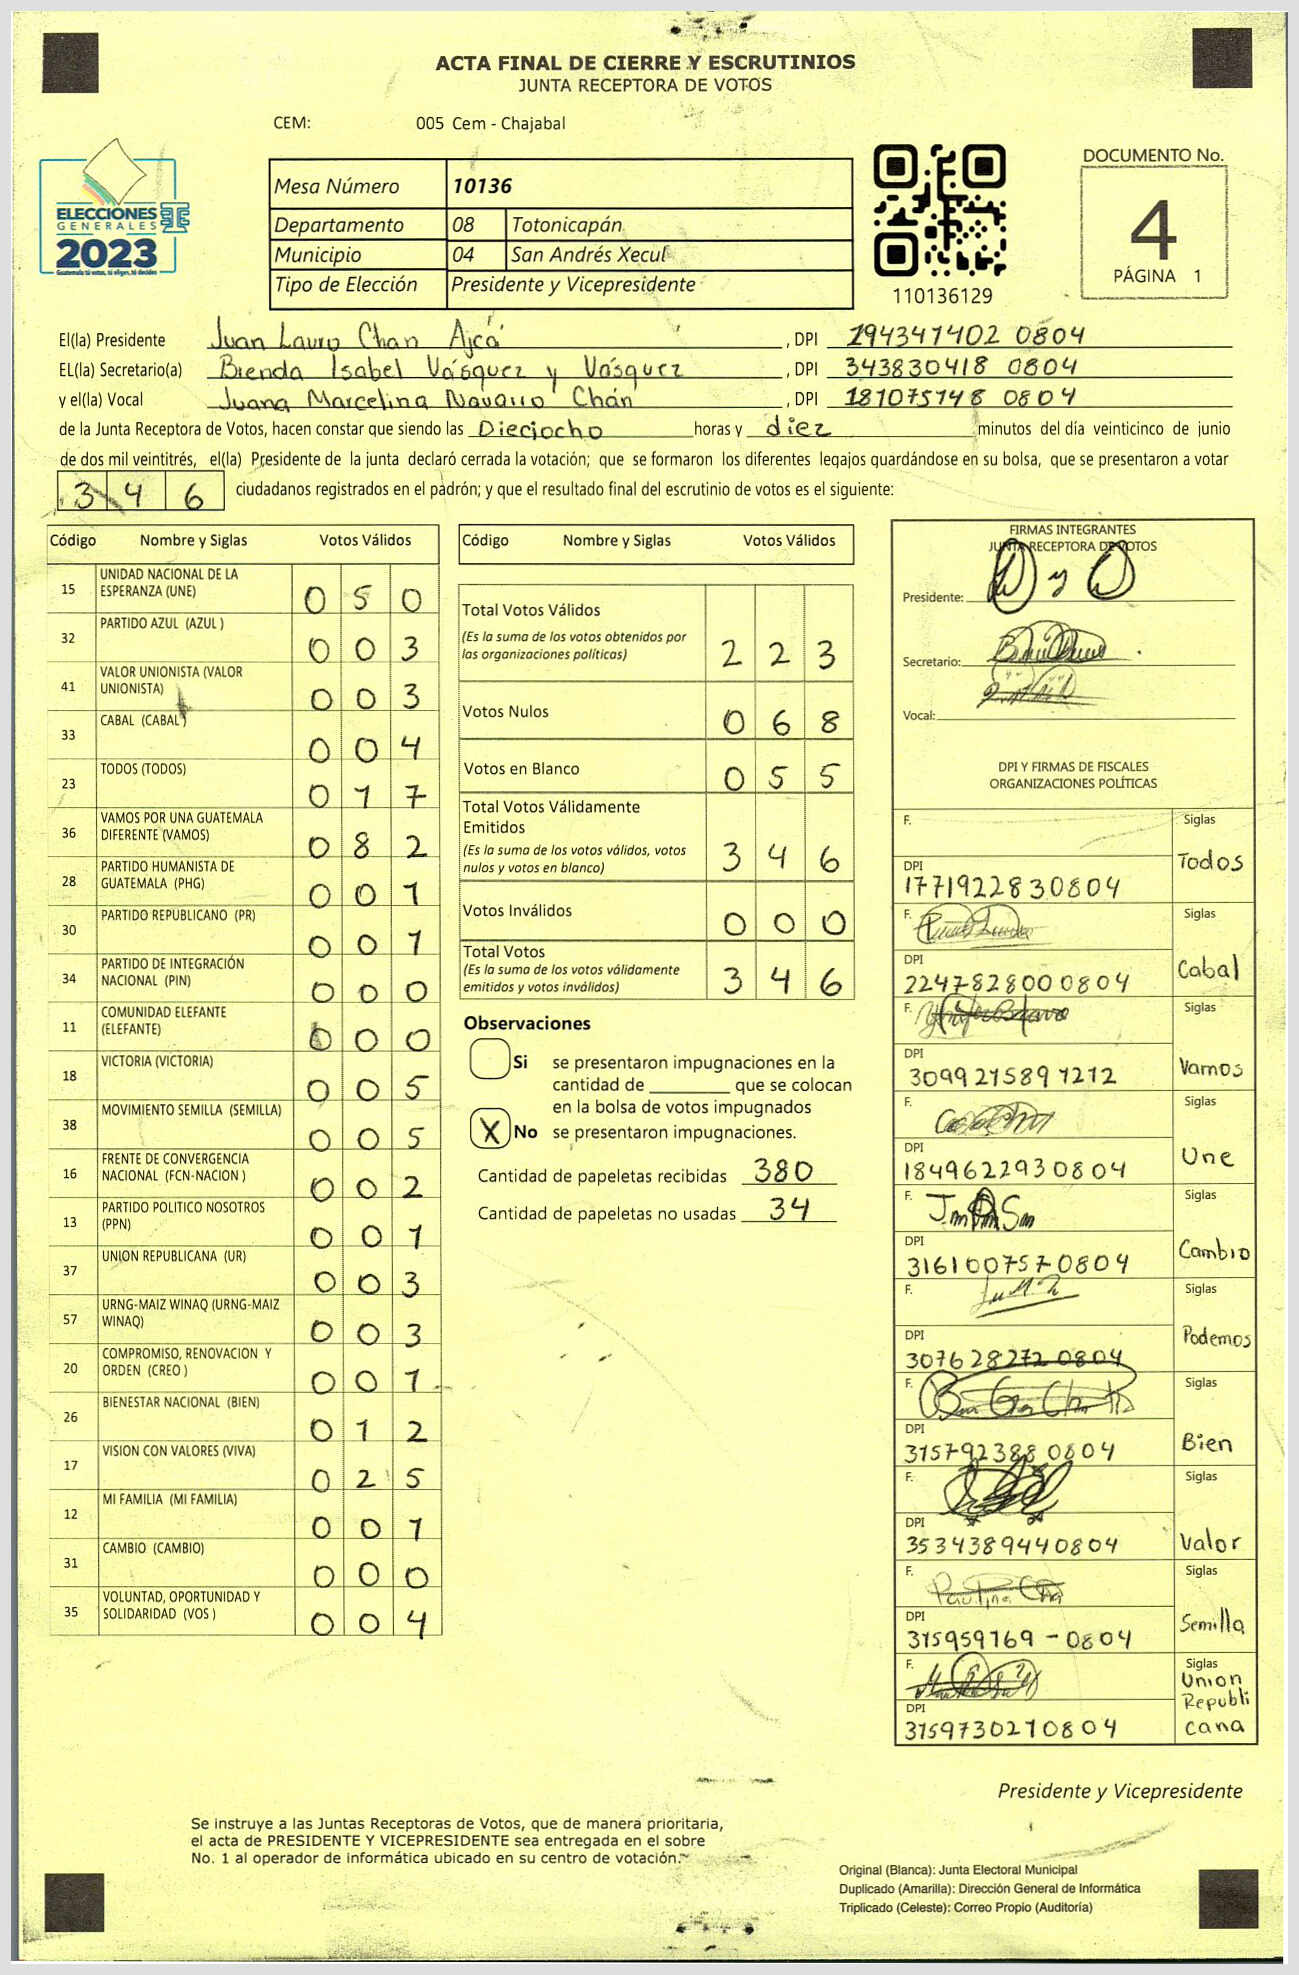 ACTA FINAL DE CIERRE Y ESCRUTINIOS
JUNTA RECEPTORA DE VOTOS
CEM: 005 Cem - Chajabal
ELECCIONES
GENERALES
2023
Guatemala tú votas, tú eliges, tú decides
Mesa Número 10136
Departamento 08 Totonicapán
Municipio 04 San Andrés Xecul
Tipo de Elección Presidente y Vicepresidente
110136129
DOCUMENTO No.
4
PÁGINA 1
El(la) Presidente Juan Lauro Chan Ajcá , DPI 194341402 0804
EL(la) Secretario(a) Brenda Isabel Vásquez y Vásquez , DPI 343830418 0804
y el(la) Vocal Juana Marcelina Navarro Chán , DPI 181075148 0804
de la Junta Receptora de Votos, hacen constar que siendo las Dieciocho horas y diez minutos del día veinticinco de junio
de dos mil veintitrés, el(la) Presidente de la junta declaró cerrada la votación; que se formaron los diferentes legajos guardándose en su bolsa, que se presentaron a votar
3 4 6 ciudadanos registrados en el padrón; y que el resultado final del escrutinio de votos es el siguiente:
Código Nombre y Siglas Votos Válidos
15 UNIDAD NACIONAL DE LA ESPERANZA (UNE) 0 5 0
32 PARTIDO AZUL (AZUL ) 0 0 3
41 VALOR UNIONISTA (VALOR UNIONISTA) 0 0 3
33 CABAL (CABAL ) 0 0 4
23 TODOS (TODOS) 0 1 7
36 VAMOS POR UNA GUATEMALA DIFERENTE (VAMOS) 0 8 2
28 PARTIDO HUMANISTA DE GUATEMALA (PHG) 0 0 1
30 PARTIDO REPUBLICANO (PR) 0 0 1
34 PARTIDO DE INTEGRACIÓN NACIONAL (PIN) 0 0 0
11 COMUNIDAD ELEFANTE (ELEFANTE) 0 0 0
18 VICTORIA (VICTORIA) 0 0 5
38 MOVIMIENTO SEMILLA (SEMILLA) 0 0 5
16 FRENTE DE CONVERGENCIA NACIONAL (FCN-NACION ) 0 0 2
13 PARTIDO POLITICO NOSOTROS (PPN) 0 0 1
37 UNION REPUBLICANA (UR) 0 0 3
57 URNG-MAIZ WINAQ (URNG-MAIZ WINAQ) 0 0 3
20 COMPROMISO, RENOVACION Y ORDEN (CREO ) 0 0 1
26 BIENESTAR NACIONAL (BIEN) 0 1 2
17 VISION CON VALORES (VIVA) 0 2 5
12 MI FAMILIA (MI FAMILIA) 0 0 1
31 CAMBIO (CAMBIO) 0 0 0
35 VOLUNTAD, OPORTUNIDAD Y SOLIDARIDAD (VOS ) 0 0 4
Código Nombre y Siglas Votos Válidos
Total Votos Válidos 2 2 3
(Es la suma de los votos obtenidos por
las organizaciones políticas)
Votos Nulos 0 6 8
Votos en Blanco 0 5 5
Total Votos Válidamente
Emitidos 3 4 6
(Es la suma de los votos válidos, votos
nulos y votos en blanco)
Votos Inválidos 0 0 0
Total Votos 3 4 6
(Es la suma de los votos válidamente
emitidos y votos inválidos)
Observaciones
Si se presentaron impugnaciones en la
cantidad de ________ que se colocan
en la bolsa de votos impugnados
X No se presentaron impugnaciones.
Cantidad de papeletas recibidas 380
Cantidad de papeletas no usadas 34
FIRMAS INTEGRANTES
JUNTA RECEPTORA DE VOTOS
Presidente:
Secretario:
Vocal:
DPI Y FIRMAS DE FISCALES
ORGANIZACIONES POLÍTICAS
F. Siglas
DPI 1771922830804 Todos
F. Siglas
DPI 2247828000804 Cabal
F. Siglas
DPI 3099215891212 Vamos
F. Siglas
DPI 1849622930804 Une
F. Siglas
DPI 3161007570804 Cambio
F. Siglas
DPI 3076282720804 Podemos
F. Siglas
DPI 315792388 0804 Bien
F. Siglas
DPI 3534389440804 Valor
F. Siglas
DPI 315959169 - 0804 Semilla
F. Siglas
DPI 3159730210804 Union Republi cana
Presidente y Vicepresidente
Se instruye a las Juntas Receptoras de Votos, que de manera prioritaria,
el acta de PRESIDENTE Y VICEPRESIDENTE sea entregada en el sobre
No. 1 al operador de informática ubicado en su centro de votación.
Original (Blanca): Junta Electoral Municipal
Duplicado (Amarilla): Dirección General de Informática
Triplicado (Celeste): Correo Propio (Auditoría)